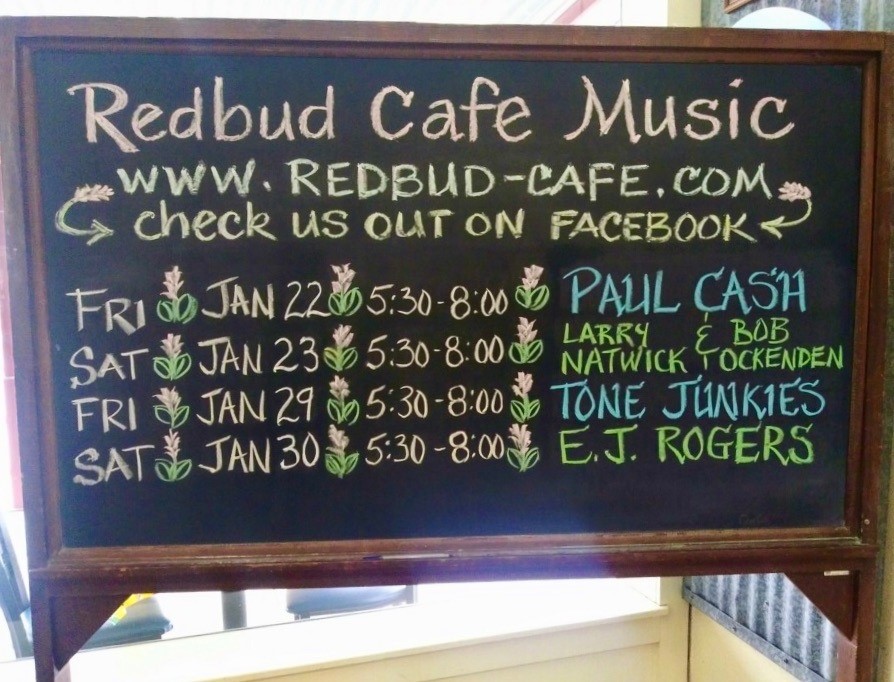 Redbud Cafe Music
WWW.REDBUD-CAFE.COM
check us out on FACEBOOK
FRI JAN 22 5:30-8:00 PAUL CASH
SAT JAN 23 5:30-8:00 LARRY NATWICK & BOB OCKENDEN
FRI JAN 29 5:30-8:00 TONE JUNKIES
SAT JAN 30 5:30-8:00 E.J. ROGERS